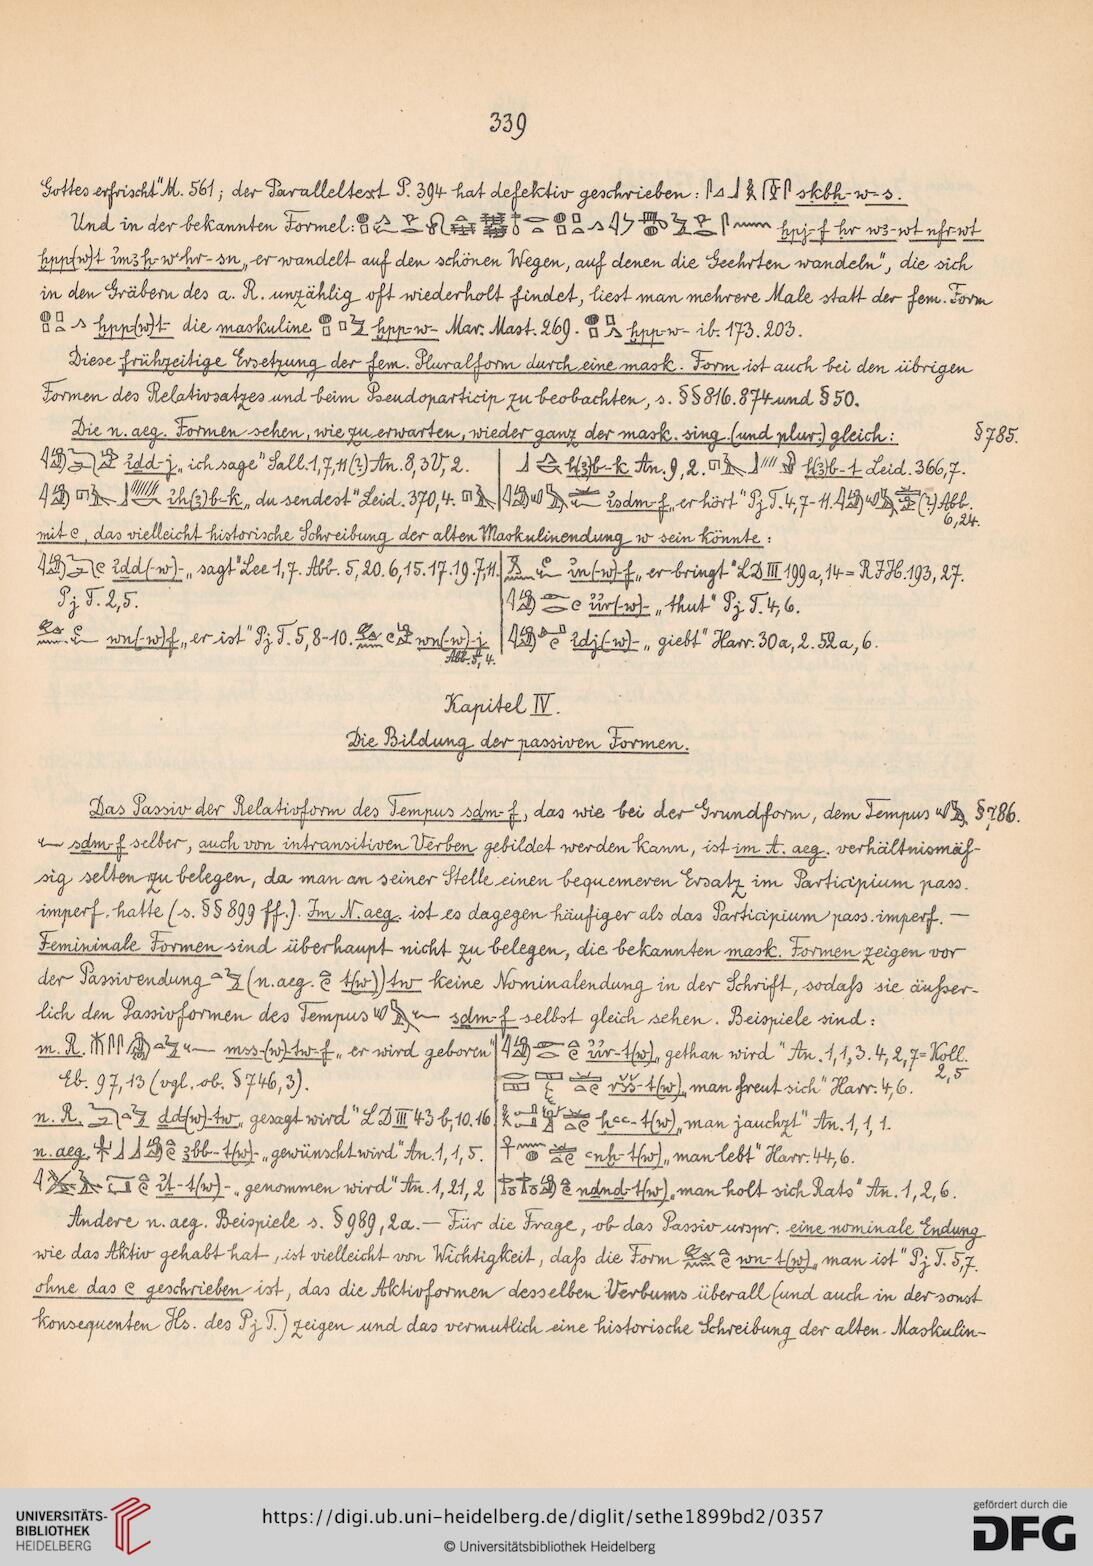 339
Gottes erfrischt" M. 561; der Paralleltext P. 394 hat defektiv geschrieben: skbḥ-w-s.
Und in der bekannten Formel: ḫpj-f ḥr wꜣ-wt nfr-wt
ḫpp(w)t ἰmꜣḫ-w ḥr-sn „er wandelt auf den schönen Wegen, auf denen die Geehrten wandeln", die sich
in den Gräbern des a. R. unzählig oft wiederholt findet, liest man mehrere Male statt der fem. Form
ḫpp(w)t die maskuline ḫpp-w- Mar. Mast. 269. ḫpp-w- ib. 173. 203.
Diese frühzeitige Ersetzung der fem. Pluralform durch eine mask. Form ist auch bei den übrigen
Formen des Relativsatzes und beim Pseudoparticip zu beobachten, s. §§ 816. 874 und § 50.
Die n. aeg. Formen sehen, wie zu erwarten, wieder ganz der mask. sing. (und plur.) gleich: § 785.
ἰdd-j „ich sage" Sall. 1, 7, 11 (?) An. 8, 3V, 2.
ἰh(ꜣ)b-k „du sendest" Leid. 370, 4.
h(ꜣ)b-k An. 9, 2. h(ꜣ)b-t Leid. 366, 7.
ἰsdm-f „er hört" Pj T. 4, 7-11. (?) Abb. 6, 24.
mit e, das vielleicht historische Schreibung der alten Maskulinendung w sein könnte:
ἰdd(-w)- „sagt" Lee 1, 7. Abb. 5, 20. 6, 15. 17. 19. 7, 11.
Pj T. 2, 5.
wn(-w)f „er ist" Pj T. 5, 8-10. wn(-w)-j Abb. 5, 4.
ἰn(-w)-f „er bringt" LD III 199a, 14 = RJH. 193, 27.
ἰἰr(-w)- „thut" Pj T. 4, 6.
ἰdj(-w)- „giebt" Harr. 30a, 2. 52a, 6.
Kapitel IV.
Die Bildung der passiven Formen.
Das Passiv der Relativform des Tempus sdm-f, das wie bei der Grundform, dem Tempus § 786.
sdm-f selber, auch von intransitiven Verben gebildet werden kann, ist im A. aeg. verhältnismäs-
sig selten zu belegen, da man an seiner Stelle einen bequemeren Ersatz im Participium pass.
imperf. hatte (s. §§ 899 ff.). Im N. aeg. ist es dagegen häufiger als das Participium pass. imperf. —
Femininale Formen sind überhaupt nicht zu belegen, die bekannten mask. Formen zeigen vor
der Passivendung (n. aeg. t(w)) tw keine Nominalendung in der Schrift, sodaſs sie äuſser-
lich den Passivformen des Tempus sdm-f selbst gleich sehen. Beispiele sind:
m. R. mss-(w)-tw-f „er wird geboren"
Eb. 97, 13 (vgl. ob. § 746, 3).
n. R. dd(w)-tw „gesagt wird" LD III 43 b, 10. 16
n. aeg. ꜣbb-t(w)- „gewünscht wird" An. 1, 1, 5.
ἰt-t(w)- „genommen wird" An. 1, 21, 2
ἰἰr-t(w) „gethan wird" An. 1, 1, 3. 4, 2, 7 = Koll. 2, 5
ršš-t(w) „man freut sich" Harr. 4, 6.
hꜥꜥ-t(w) „man jauchzt" An. 1, 1, 1.
ꜥnḫ-t(w) „man lebt" Harr. 44, 6.
ndnd-t(w) „man holt sich Rats" An. 1, 2, 6.
Andere n. aeg. Beispiele s. § 989, 2a. — Für die Frage, ob das Passiv urspr. eine nominale Endung
wie das Aktiv gehabt hat, ist vielleicht von Wichtigkeit, daſs die Form wn-t(w) „man ist" Pj T. 5, 7.
ohne das e geschrieben ist, das die Aktivformen desselben Verbums überall (und auch in der sonst
konsequenten Hs. des Pj T.) zeigen und das vermutlich eine historische Schreibung der alten Maskulin-
UNIVERSITÄTS-
BIBLIOTHEK
HEIDELBERG
https://digi.ub.uni-heidelberg.de/diglit/sethe1899bd2/0357
© Universitätsbibliothek Heidelberg
gefördert durch die
DFG